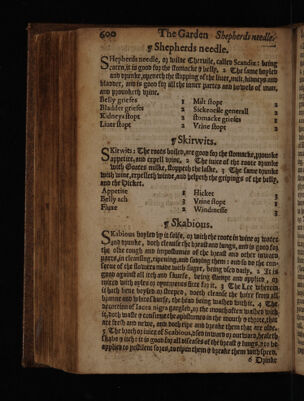 600 The Garden Shepherds needle.
¶ Shepherds needle.
SHepherds needle, or wilde Cheruile, called Scandix: being
eaten, it is good for the stomacke & belly. 2 The same boyled
and drunke, openeth the stopping of the liuer, milt, kidneys and
bladder, and is good for all the inner partes and bowels of man,
and prouoketh vrine.
Belly griefes 1 Milt stopt 2
Bladder griefes 2 Sickenesse generall 2
Kidneys stopt 2 stomacke griefes 1
Liuer stopt 2 Vrine stopt 2
¶ Skirwits.
SKirwits: The roots boiled, are good for the stomacke, prouoke
appetite, and expell vrine. 2 The iuice of the roote drunke
with Goates milke, stoppeth the laske. 3 The same drunke
with wine, expelleth winde, and helpeth the gripings of the belly,
and the Hicket.
Appetite 1 Hicket 3
Belly ach 3 Vrine stopt 1
Fluxe 2 Windinesse 3
¶ Skabious.
SKabious boyled by it selfe, or with the roote in wine or water
and drunke, doth cleanse the breast and lungs, and is good for
the olde cough and impostumes of the breast and other inward
parts, in cleansing, ripening, and healing them: and so doe the con-
serue of the flowers made with suger, being vsed daily. 2 It is
good against all itch and scurfe, being stampt and applied, or
mixed with oyles or oyntments fit for it. 3 The Lee wherein
it hath bene boyled or steeped, doeth cleanse the haire from all
branne and white scurfe, the head being washed with it. 4 The
it, doth waste & consume the impostemes in the mouth & throte, that
are fresh and new, and doth ripe and breake them that are olde.
5 The broth or iuice of Scabious,
skabs & itch: it is good for all diseases of the breast & lungs,
applied to pestilent sores, to ripen them & breake them with speed.
6 Drunke